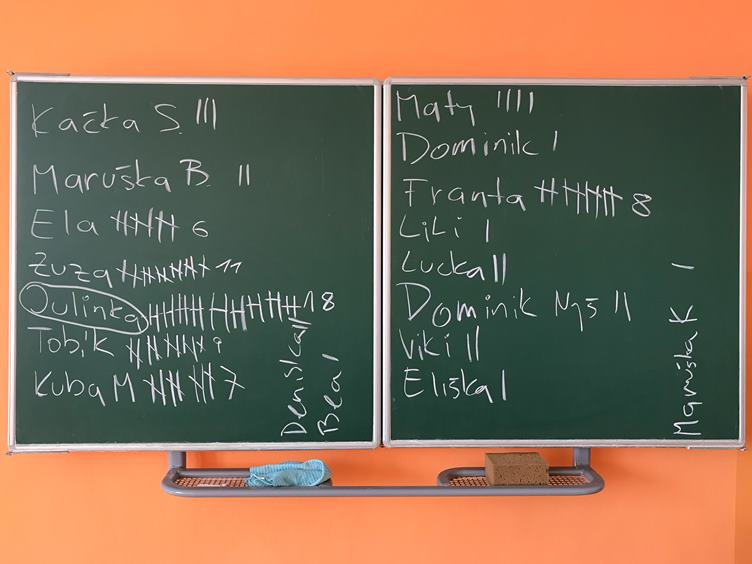 Kačka S. III
Maruška B. II
Ela 6
Zuza 11
Qulinka 18
Tobik 9
Kuba M 7
Deniska II
Bea I
Maty IIII
Dominik I
Franta 8
Lili I
Lucka II
Dominik Nyš II
Viki II
Eliška I
Maruška K I